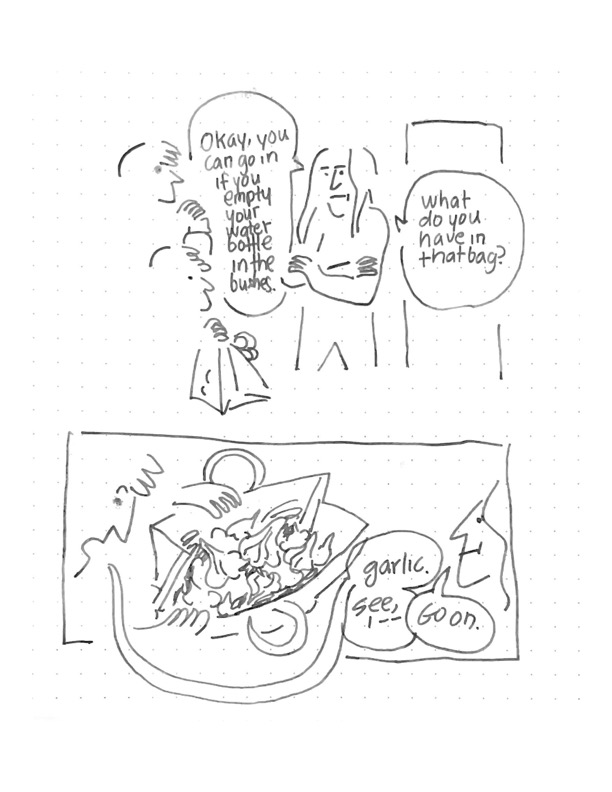 Okay, you
can go in
if you
empty
your
water
bottle
in the
bushes.
what
do you
have in
that bag?
garlic.
see,
I--
Go on.